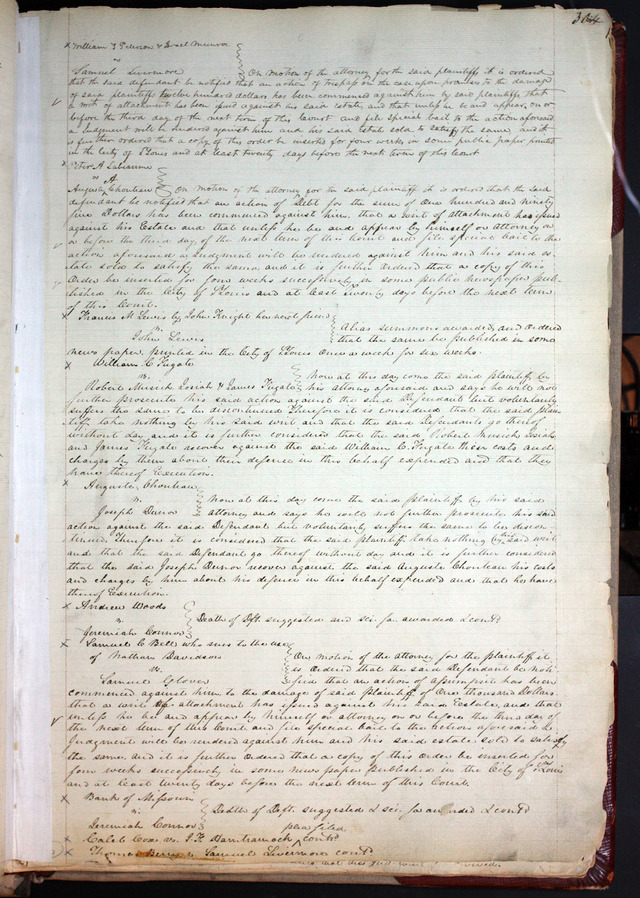 304
x William T Peterson & Israel Munroe
vs
Samuel Livermore } On motion of the attorney for the said plaintiffs it is ordered
that the said defendant be notified that an action of trespass on the case upon promises to the damage
of said plaintiffs twelve hundred dollars has been commenced against him by said plaintiffs, that
a writ of attachment has been issued against his said estate, and that unless he be and appear, on or
before the third day of the next term of this Court and file special bail to the action aforesaid
a Judgment will be rendered against him and his said estate sold to satisfy the same, and it
is further ordered that a copy of this order be inserted for four weeks in some public paper printed
in the City of St Louis and at least twenty days before the next term of this Court
x Peter A Labeaume
vs
Auguste A. Chouteau } On motion of the attorney for the said plaintiff it is ordered that the said
defendant be notified that an action of Debt for the sum of One hundred and ninety
five Dollars has been commenced against him, that a writ of attachment has issued
against his Estate and that unless he be and appear by himself or attorney on
or before the third day of the next term of this Court and file special bail to the
action aforesaid a Judgment will be rendered against him and his said es-
tate sold to satisfy the same, and it is further Ordered that a copy of this
Order be inserted for four weeks successively in some public newspaper pub-
lished in the City of St Louis and at least twenty days before the next term
of this Court.
x Francis M Lewis by John Knight her next friend
vs
John Lewis } Alias summons awarded, and ordered
that the same be published in some
news paper, printed in the City of St Louis once a week for six weeks.
x William C Fugate
vs.
Robert Musick Josiah & James Fugate } Now at this day came the said plaintiff by
his attorney aforesaid and says he will not
further prosecute his said action against the said Defendant but voluntarily
suffers the same to be discontinued Therefore it is considered that the said plain-
tiff take nothing by his said writ and that the said Defendants go thereof
without day and it is further considered that the said Robert Musick Josiah
and James Fugate recover against the said William C. Fugate their costs and
charges by them about their defence in this behalf expended and that they
have thereof Execution.
x Auguste Chouteau
vs.
Joseph Dunor } Now at this day came the said plaintiff by his said
attorney and says he will not further prosecute his said
action against the said Defendant but voluntarily suffers the same to be discon-
tinued, Therefore it is considered that the said plaintiff take nothing by his said writ
and that the said Defendant go thereof without day and it is further considered
that the said Joseph Dunor recover against the said Auguste Chouteau his costs
and charges by him about his defence in this behalf expended and that he have
thereof Execution.
x Andrew Woods
vs.
Jeremiah Connor } Death of Deft. suggested and sci. fa. awarded & contd
x Samuel C Bell who sues to the use
of Nathan Davidson
vs.
Samuel Glover } On motion of the attorney for the plaintiff it
is ordered that the said Defendant be noti-
fied that an action of assumpsit has been
commenced against him to the damage of said plaintiff of One thousand Dollars
that a writ of attachment has issued against his said Estate, and that
unless he be and appear by himself or attorney on or before the third day of
the next term of this Court and file special bail to the action aforesaid a
Judgment will be rendered against him and his said estate sold to satisfy
the same, and it is further Ordered that a copy of this Order be inserted for
four weeks successively in some news paper published in the City of St Louis
and at least twenty days before the next term of this Court.
x Bank of Missouri
vs.
Jeremiah Connor } Death of Deft. suggested & sci. fa. awarded & contd
plea filed
x Caleb Cox vs. J. F. Barntramack contd
x Thomas Berry vs Samuel Livermore contd